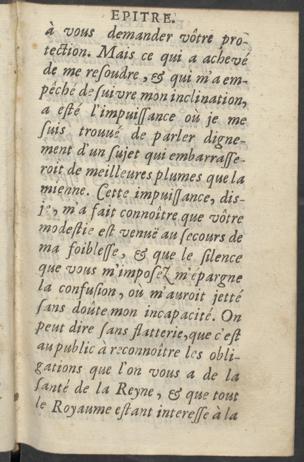 EPITRE.
à vous demander vôtre pro-
tection. Mais ce qui a achevé
de me resoudre, & qui m'a em-
pêché de suivre mon inclination,
a esté l'impuissance où je me
suis trouvé de parler digne-
ment d'un sujet qui embarrasse-
roit de meilleures plumes que la
mienne. Cette impuissance, dis-
je, m'a fait connoitre que vôtre
modestie est venuë au secours de
ma foiblesse, & que le silence
que vous m'imposez m'épargne
la confusion, où m'auroit jetté
sans doûte mon incapacité. On
peut dire sans flatterie, que c'est
au public à reconnoître les obli-
gations que l'on vous a de la
santé de la Reyne, & que tout
le Royaume estant interesse à la